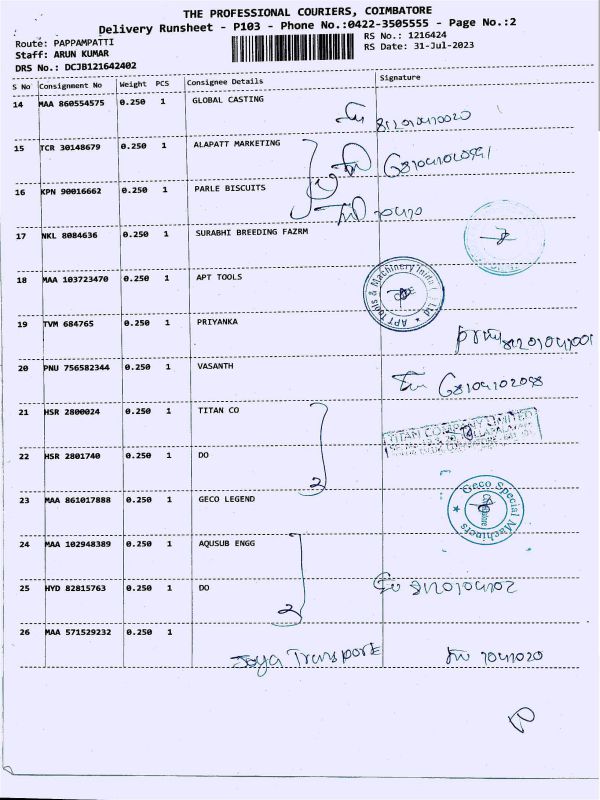 THE PROFESSIONAL COURIERS, COIMBATORE
Delivery Runsheet - P103 - Phone No.:0422-3505555 - Page No.:2
Route: PAPPAMPATTI
RS No.: 1216424
Staff: ARUN KUMAR
RS Date: 31-Jul-2023
DRS No.: DCJB121642402
S No Consignment No Weight PCS Consignee Details Signature
14 MAA 860554575 0.250 1 GLOBAL CASTING
15 TCR 30148679 0.250 1 ALAPATT MARKETING
16 KPN 90016662 0.250 1 PARLE BISCUITS
17 NKL 8084636 0.250 1 SURABHI BREEDING FAZRM
18 MAA 103723470 0.250 1 APT TOOLS
APT Tools & Machinery India
19 TVM 684765 0.250 1 PRIYANKA
20 PNU 756582344 0.250 1 VASANTH
21 HSR 2800024 0.250 1 TITAN CO
TITAN COMPANY LIMITED
22 HSR 2801740 0.250 1 DO
2
23 MAA 861017888 0.250 1 GECO LEGEND
Geco Special Machines
24 MAA 102948389 0.250 1 AQUSUB ENGG
25 HYD 82815763 0.250 1 DO
2
26 MAA 571529232 0.250 1
Joya Transport